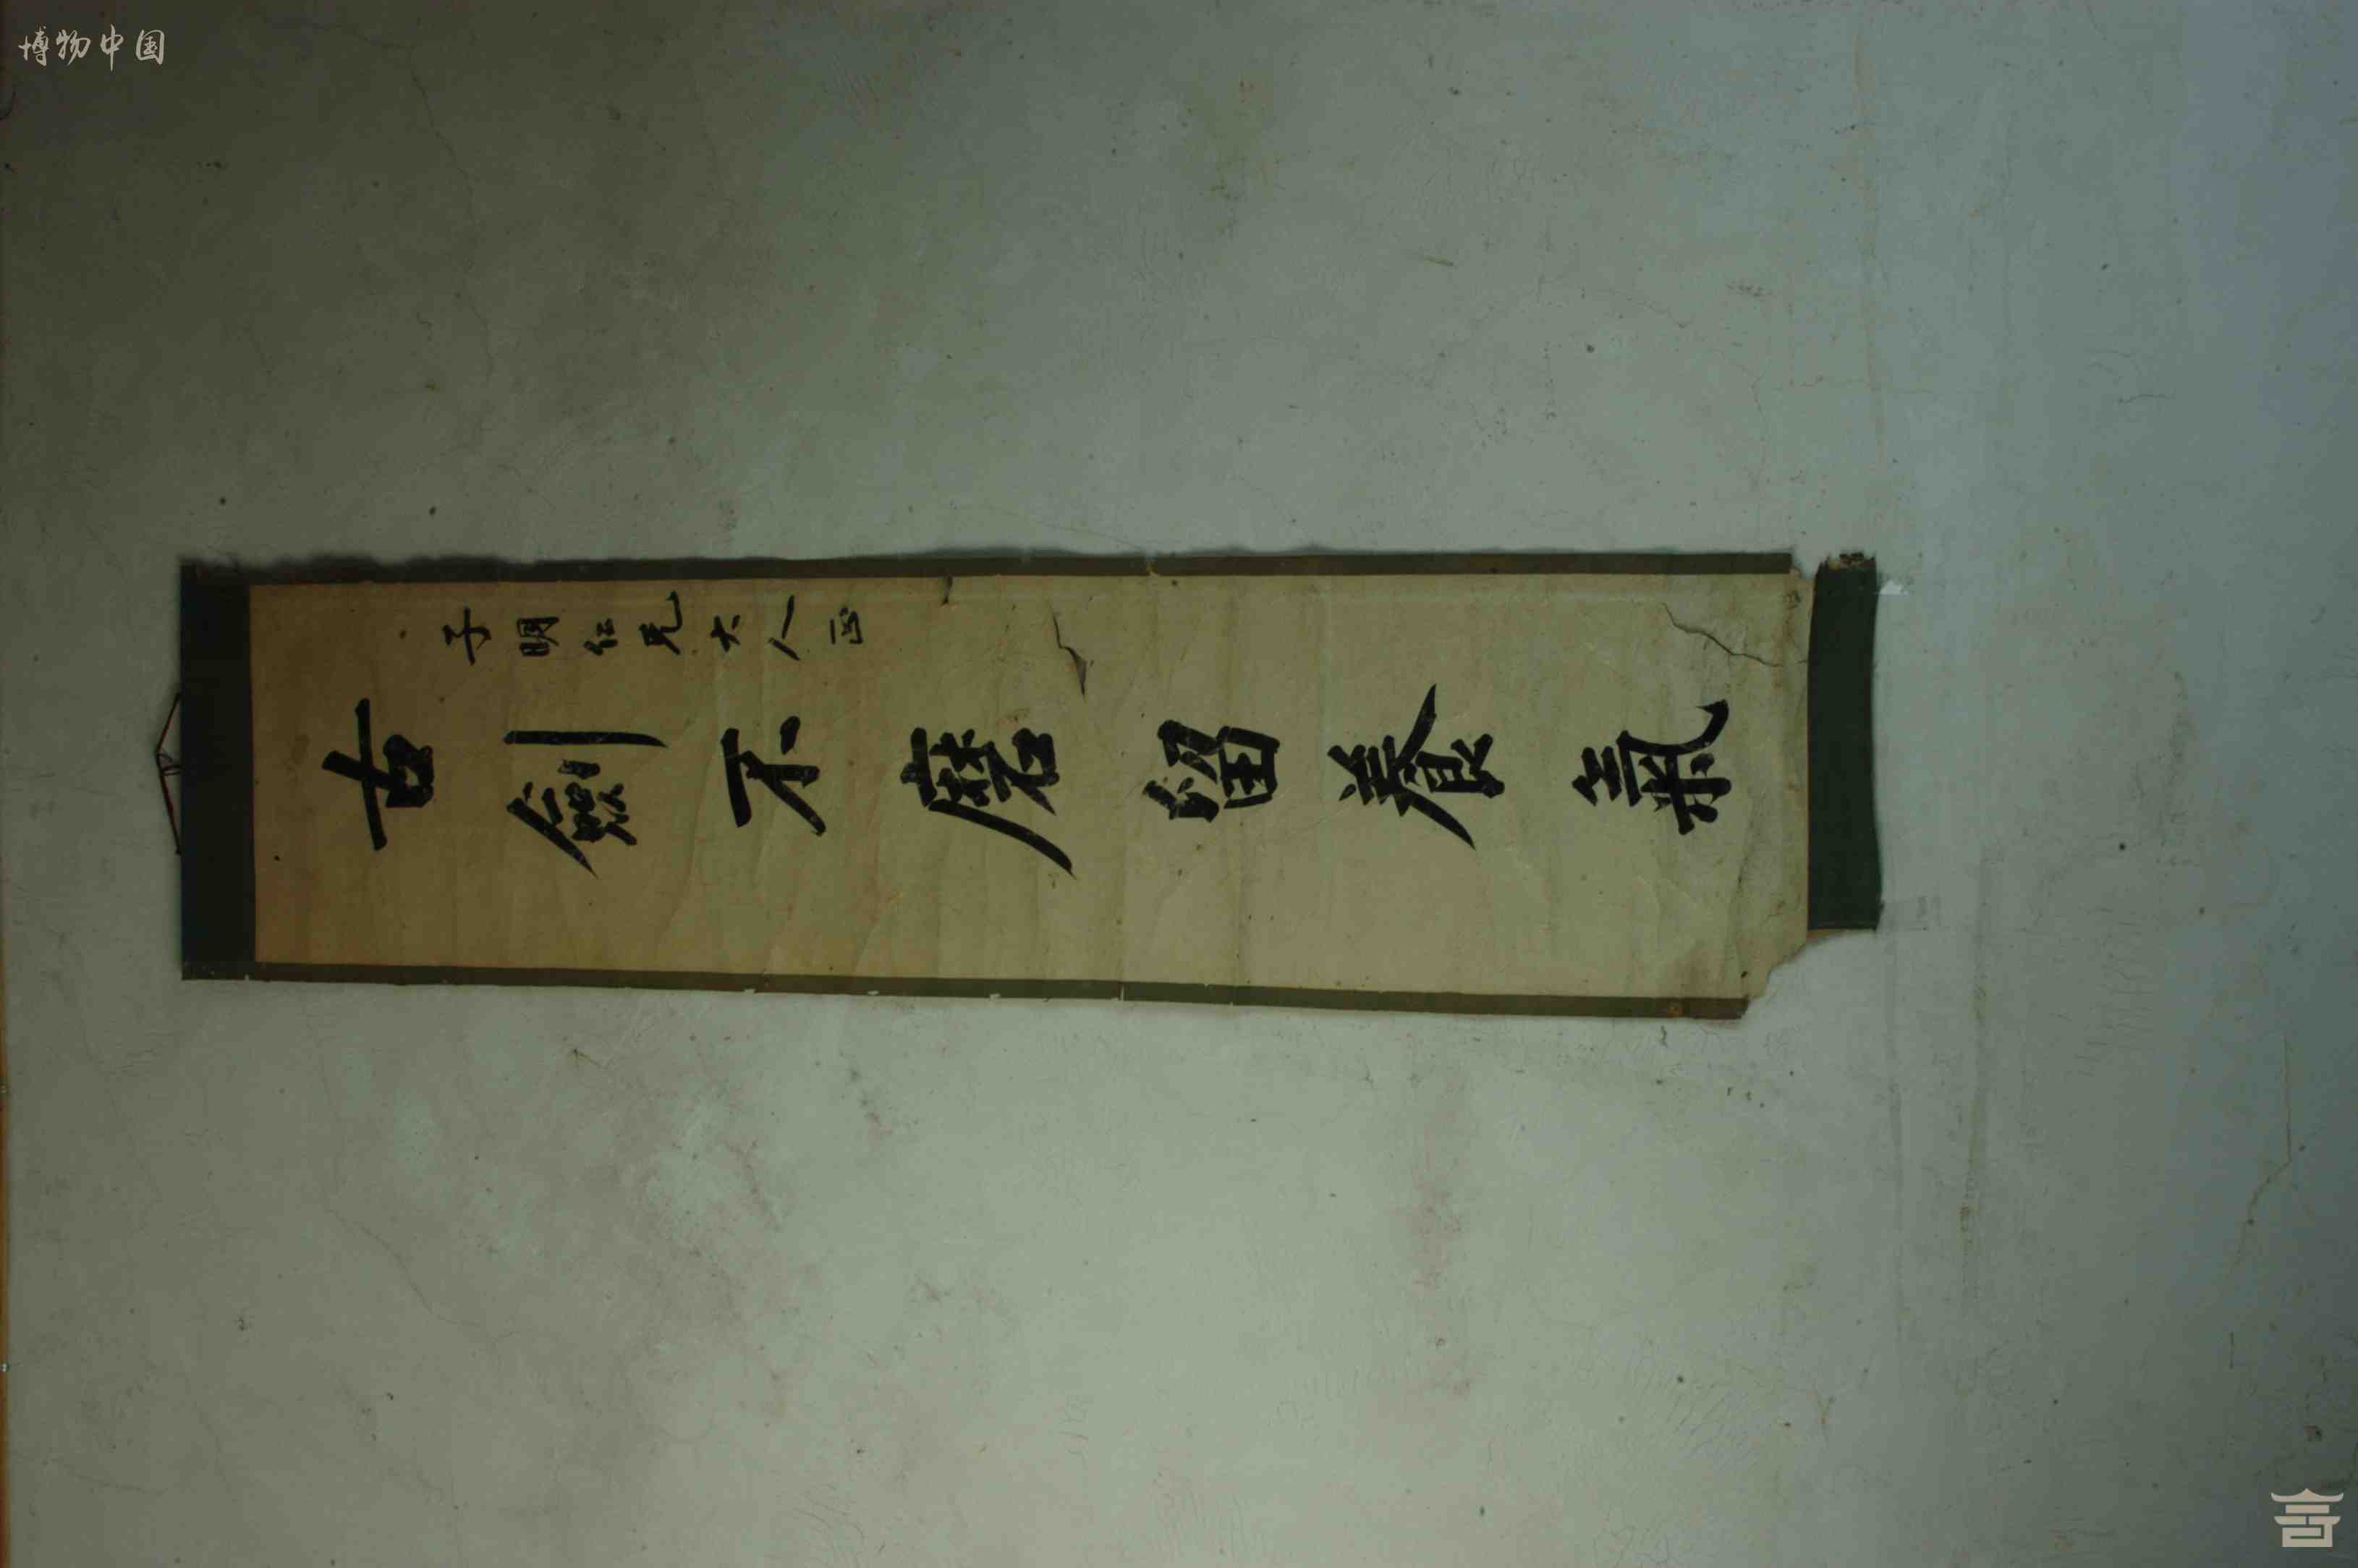 博物中国
子明仁兄大人正
古劍不磨留養氣